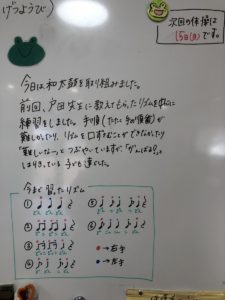 げつようび)
次回の体操は
15日(月)
です。
今日は和太鼓を取り組みました。
前回、戸田先生に教えてもらったリズムを中心に
練習をしました。手順(たたく手の順番)が
難しかったり、リズムを口ずさむことができなかったり
「難しいな〜」とつぶやいていますが、「がんばる?」と
はりきっている子ども達でした。
今まで習ったリズム
①
②
③
④
⑤
⑥
→右手
→左手